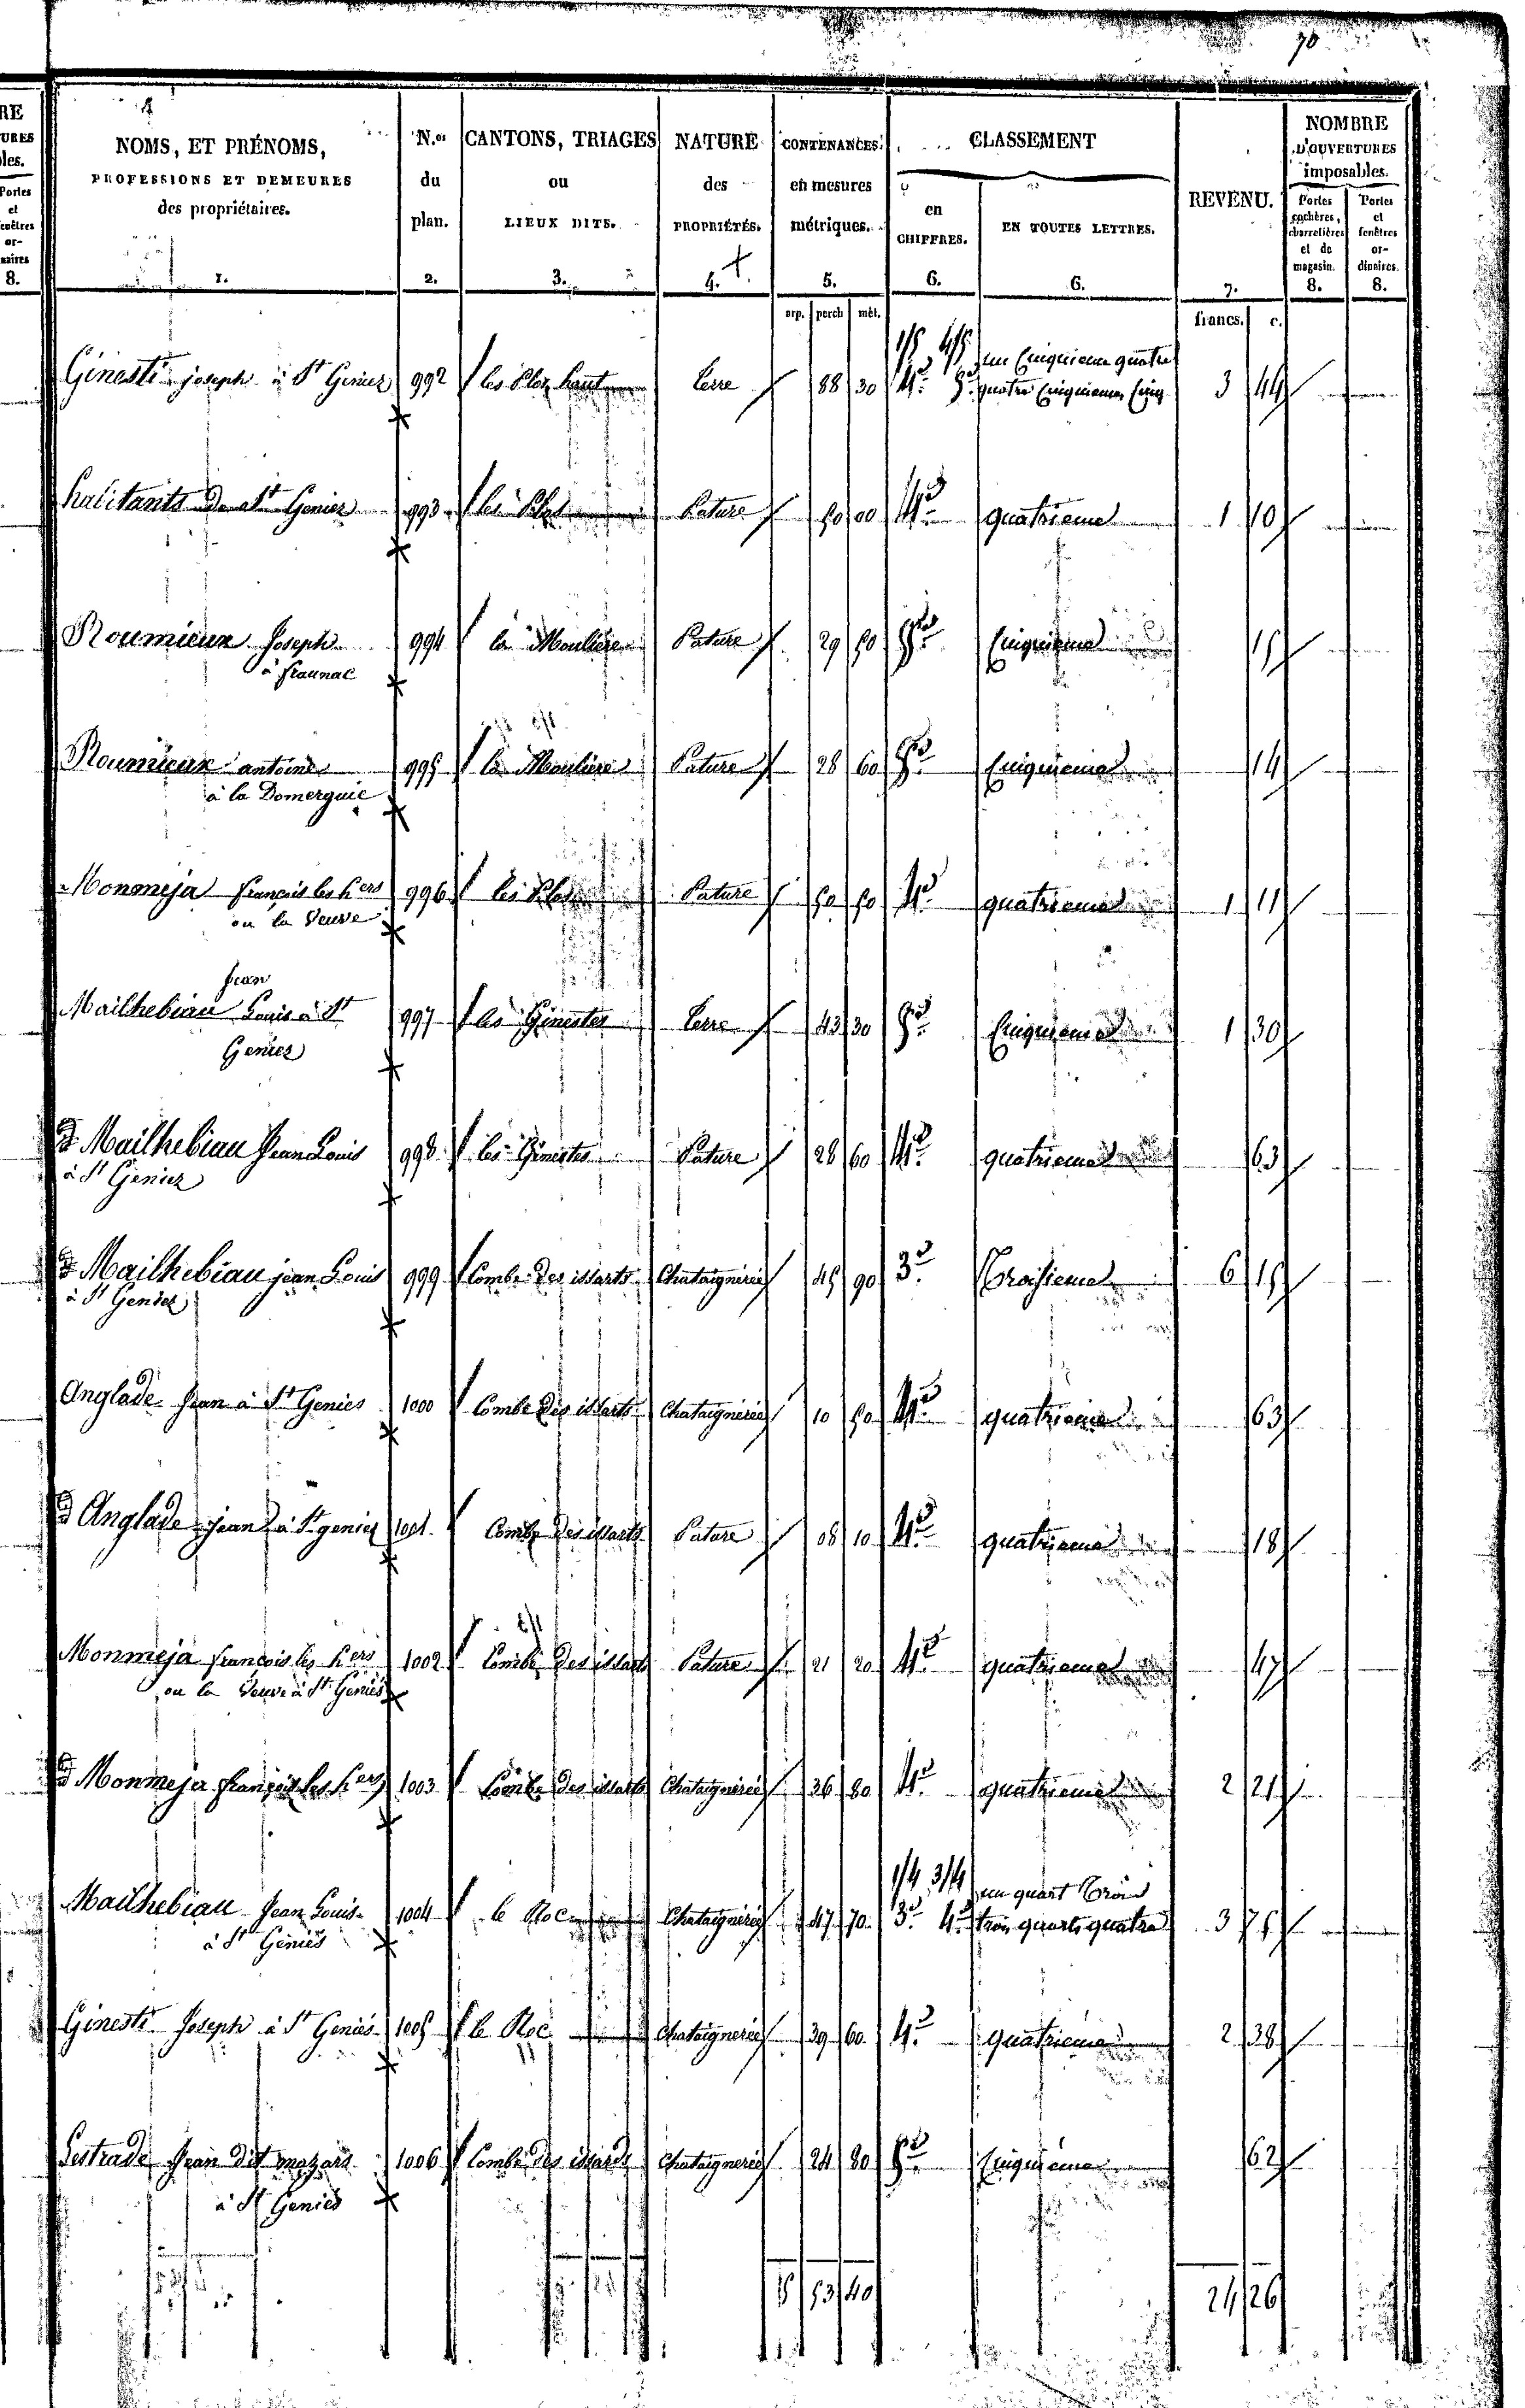 70
NOMS, ET PRÉNOMS,
PROFESSIONS ET DEMEURES
des propriétaires.
1.
N.os
du
plan.
2.
CANTONS, TRIAGES
ou
LIEUX DITS.
3.
NATURE
des
PROPRIÉTÉS.
4.
CONTENANCES.
en mesures
métriques.
5.
CLASSEMENT
en
CHIFFRES.
6.
EN TOUTES LETTRES.
6.
REVENU.
7.
NOMBRE
D'OUVERTURES
imposables.
Portes
cochères,
charretières
et de
magasin.
8.
Portes
et
fenêtres
or-
dinaires.
8.
arp. perch mèt. francs. c.
1/5 4/5 un Cinquieme quatre
Ginesté joseph à St Geniez 992 les Plos haut terre 88 30 4e 5e quatre Cinquiemes Cinq 3 44
habitants de St Geniez 993 les Plos Pature 50 00 4e quatrieme 1 10
Roumieux Joseph 994 la Mouliere Pature 29 50 5e Cinquieme 15
à flaunac
Roumieux antoine 995 la Mouliere Pature 28 60 5e Cinquieme 14
à la Domerguie
Monmeja françois les hers 996 les Plos Pature 50 50 4e quatrieme 1 11
ou la Veuve
Jean
Mailhebiau Louis à St 997 les Ginestes terre 43 30 5e Cinquieme 1 30
Geniez
d Mailhebiau Jean Louis 998 les Ginestes Pature 28 60 4e quatrieme 63
à St Geniez
d Mailhebiau jean Louis 999 Combe des issarts Chataignerie 45 90 3e troisieme 6 15
à St Geniez
Anglade Jean à St Genies 1000 Combe des issarts Chataignerie 10 50 4e quatrieme 63
d Anglade jean à St geniez 1001 Combe des issarts Pature 08 10 4e quatrieme 18
Monmeja francois les hers 1002 Combe des issarts Pature 21 20 4e quatrieme 47
ou la Veuve à St Genies
d Monmeja françois les hers 1003 Combe des issarts Chataignerie 36 80 4e quatrieme 2 21
1/4 3/4 un quart trois
Mailhebiau Jean Louis 1004 le Roc Chataignerie 47 70 3e 4e trois quarts quatre 3 75
à St Genies
Ginesté Joseph à St Genies 1005 le Roc Chataignerie 39 60 4e quatrieme 2 38
Lestrade Jean dit mazars 1006 Combe des issards Chataignerie 24 80 5e Cinquieme 62
à St Genies
5 53 40 24 26